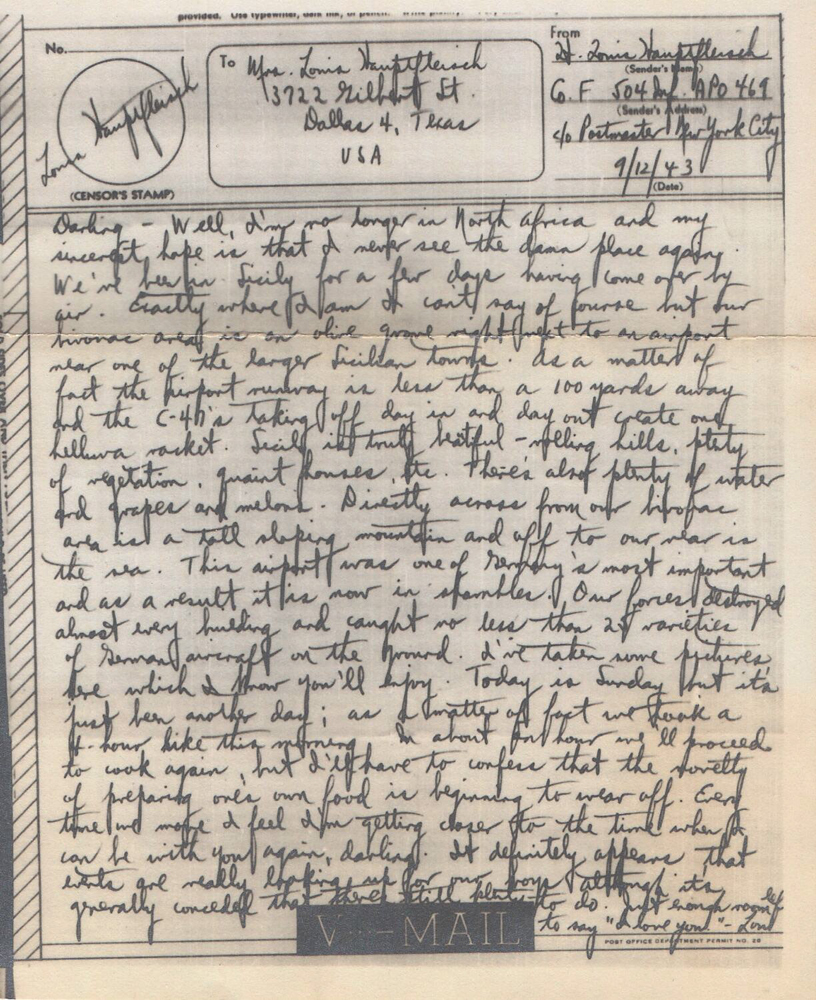 provided. Use typewriter, dark ink, or pencil.
No.
To Mrs. Louis Hauptfleisch
3722 Gilbert St.
Dallas 4, Texas
USA
From
Lt. Louis Hauptfleisch
(Sender's Name)
Co. F 504 Inf. APO 469
(Sender's Address)
c/o Postmaster New York City
9/12/43
(Date)
Louis Hauptfleisch
(CENSOR'S STAMP)
Darling - Well, I'm no longer in North Africa and my
sincerest hope is that I never see the damn place again.
We've been in Sicily for a few days having come over by
air. Exactly where I am I can't say of course but our
bivouac area is an olive grove right next to an airport
near one of the larger Sicilian towns. As a matter of
fact the airport runway is less than a 100 yards away
and the C-47's taking off day in and day out create one
helluva racket. Sicily is truly beatiful - rolling hills, plety
of vegetation, quaint houses, etc. There's also plenty of water
and grapes and melons. Directly across from our bivouac
area is a tall sloping mountain and off to our rear is
the sea. This airport was one of Germany's most important
and as a result it is now in shambles. Our forces destroyed
almost every building and caught no less than varieties
of German aircraft on the ground. I've taken some pictures
here which I know you'll enjoy. Today is Sunday but it's
just been another day; as a matter of fact we took a
4-hour hike this morning. In about an hour we'll proceed
to cook again, but I'll have to confess that the novelty
of preparing one's own food is beginning to wear off. Every
time we move I feel I'm getting closer to the time when I
can be with you again, darling. It definitely appears that
events are really looking up for our boys although it's
generally conceded that there's still plenty to do. Just enough room left
to say "I love you." - Lou
V···—MAIL
POST OFFICE DEPARTMENT PERMIT NO. 28